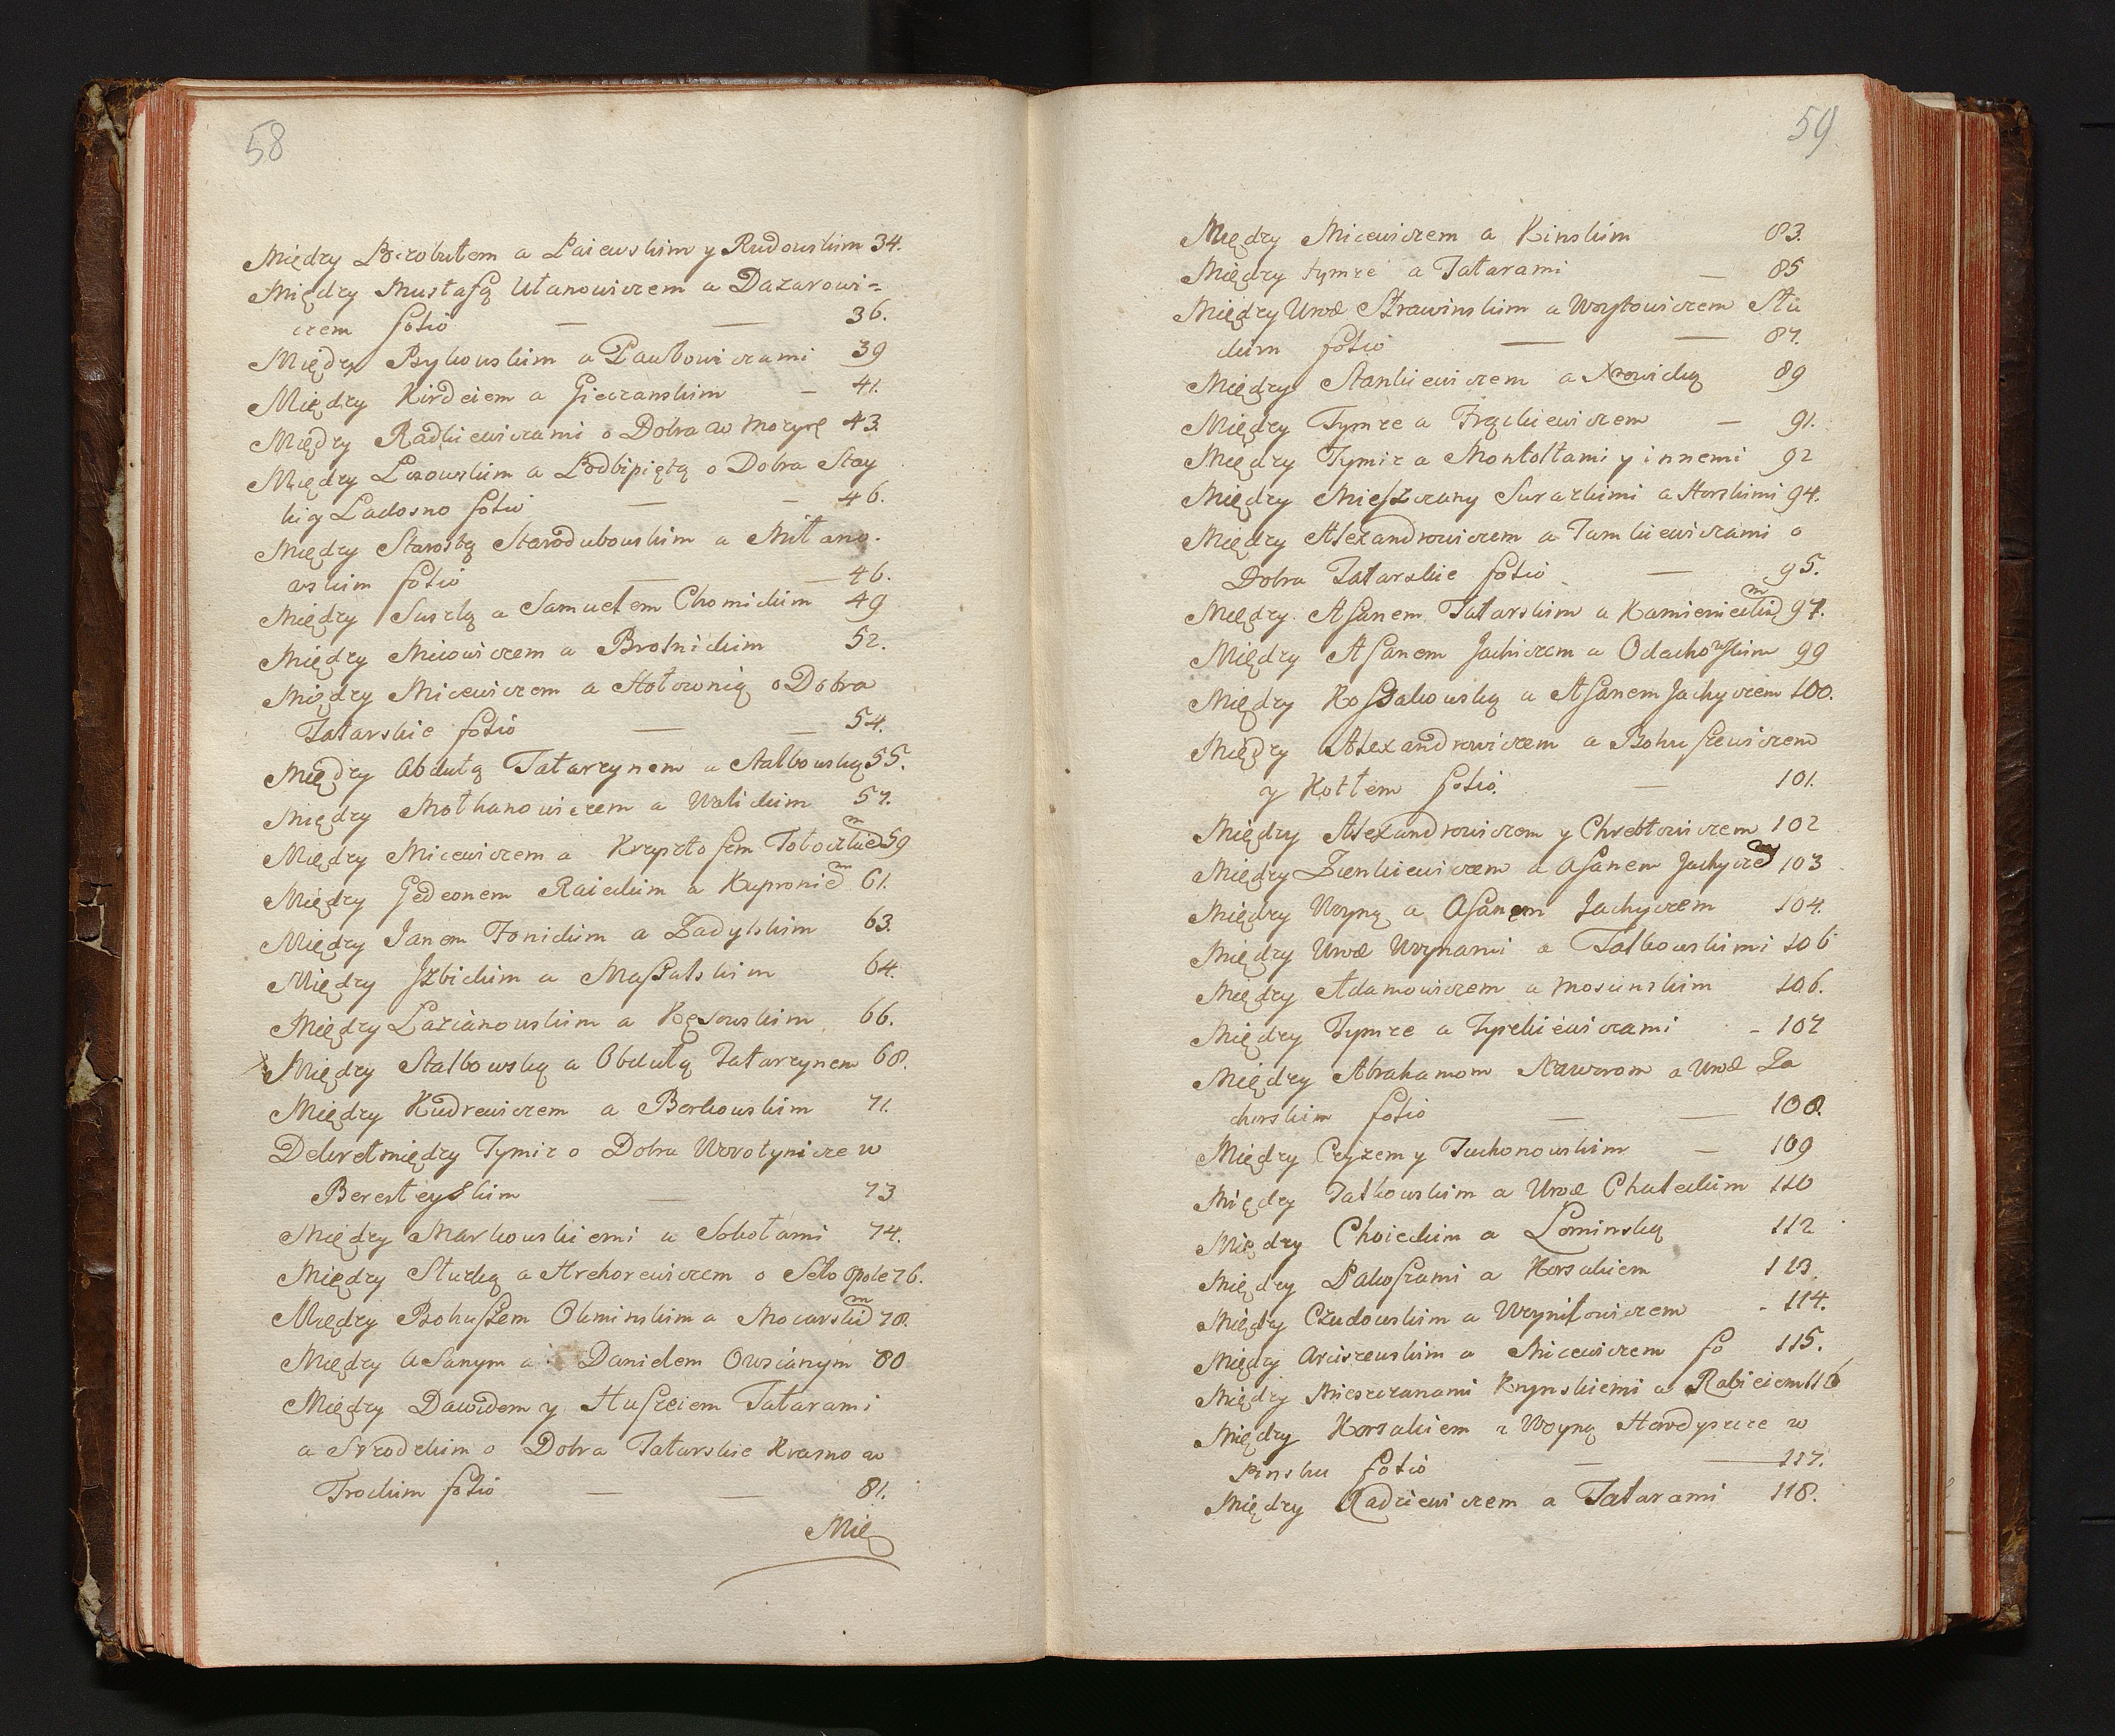 58
Między Birobutem a Paiewskim y Rudowskim 34.
Między Mustafą Ułanowiczem a Dazarowi=
czem folio 36.
Między Bykowskim a Pawłowiczami 39
Między Kirdeiem a Gieczanskim 41.
Między Radkiewiczami o Dobra w Mozyrę 43.
Między Lisowskim a Podbipiętą o Dobra Stay
ki y Ladosno folio 46.
Między Starostą Starodubowskim a Miłano-
wskim folio 46.
Między Suszką a Samuelem Chomickim 49
Między Micowiczem a Brolnickim 52.
Między Micewiczem a Hołownią o Dobra
Tatarskie folio 54.
Między Abdułą Tatarzynem a Stalbowską 55.
Między Mołkanowiczem a Walickim 57.
Między Micewiczem a Krzysztofem Tołoczkiem 59
Między Gedeonem Raieckim a Kuproniem 61.
Między Janem Fonickim a Zadylskim 63.
Między Jzbickim a Massalskim 64.
Między Lazianowskim a Kęsowskim 66.
Między Stalbowską a Obdułą Tatarzynem 68.
Między Kudrewiczem a Borkowskim 71.
Dekret między Tymiż o Dobra Worotynicze w
Beresteyskim 73
Między Markowskiemi a Sobołami 74.
Między Sluzką a Hrehorewiczem o Seło Opole 76.
Między Bohuszem Okminskim a Mocarskim 78.
Między Asanym a Danielem Owsianym 80
Między Dawidem y Huseiem Tatarami
a Szrodzkim o Dobra Tatarskie Krasno w
Trockim folio 81.
Mię
59
Między Micewiczem a Kinskim 83.
Między tymże a Tatarami 85
Między Urod Strawinskim a Woytowiczem Stu
dum folio 87.
Między Stankiewiczem a Nowicką 89
Między Tymże a Frąckiewiczem 91.
Między Tymiż a Monkołtami y innemi 92
Między Mieszczany Surazkimi a Horskimi 94.
Między Alexandrowiczem a Tumkiewiczami o
Dobra Tatarskie folio 95.
Między Asanem Tatarskim a Kamienieckim 97.
Między Asanem Jachiczem a Odachowskim 99
Między Kossakowską a Asanem Jachyczem 100.
Między Alexandrowiczem a Bohuszewiczem
y Kottem folio. 101.
Między Alexandrowiczem y Chrebtowiczem 102
Między Zienkiewiczem a Asanem Jachyczem 103
Między Woyną a Asanem Jachyczem 104.
Między Urod Woynami a Talkowskimi 106
Między Adamowiczem a Mosunskim 106.
Między Tymże a Tyszkiewiczami 107
Między Abrahamom Nawrom a Urod Za
chorskim folio 108.
Między Czyzem y Tuchonowskim 109
Między Talkowskim a Urod Chaleckim 110
Między Choieckim a Lominską 112
Między Pakoszami a Korsakiem 113.
Między Czudowskim a Woyniłowiczem 114.
Między Arciszewskim a Micewiczem fo 115.
Między Mieszczanami Knynskiemi a Rabieiem 116
Między Korsakiem z Woyną Hordyszcze w
Pinsku folio 117.
Między Radziewiczem a Tatarami 118.